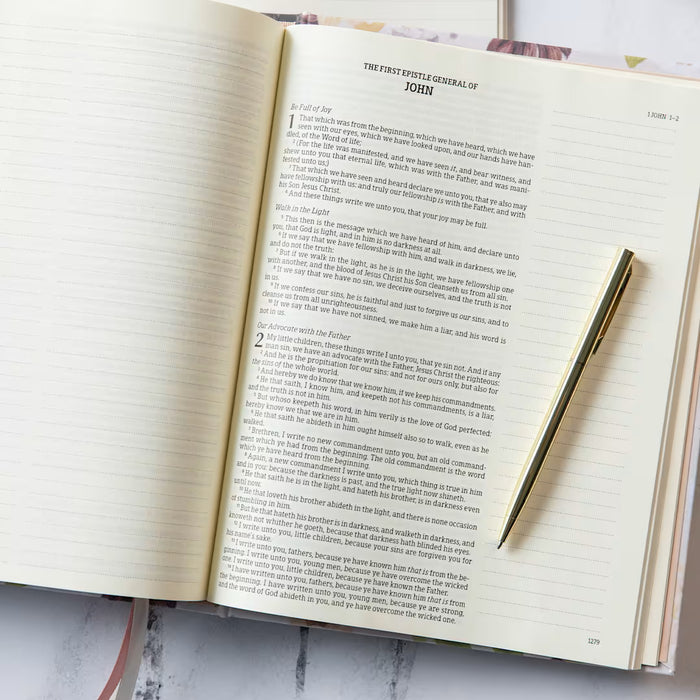 THE FIRST EPISTLE GENERAL OF
JOHN
1 JOHN 1–2
Be Full of Joy
1 That which was from the beginning, which we have heard, which we have
seen with our eyes, which we have looked upon, and our hands have han-
dled, of the Word of life;
2 (For the life was manifested, and we have seen it, and bear witness, and
shew unto you that eternal life, which was with the Father, and was mani-
fested unto us;)
3 That which we have seen and heard declare we unto you, that ye also may
have fellowship with us: and truly our fellowship is with the Father, and with
his Son Jesus Christ.
4 And these things write we unto you, that your joy may be full.
Walk in the Light
5 This then is the message which we have heard of him, and declare unto
you, that God is light, and in him is no darkness at all.
6 If we say that we have fellowship with him, and walk in darkness, we lie,
and do not the truth:
7 But if we walk in the light, as he is in the light, we have fellowship one
with another, and the blood of Jesus Christ his Son cleanseth us from all sin.
8 If we say that we have no sin, we deceive ourselves, and the truth is not
in us.
9 If we confess our sins, he is faithful and just to forgive us our sins, and to
cleanse us from all unrighteousness.
10 If we say that we have not sinned, we make him a liar, and his word is
not in us.
Our Advocate with the Father
2 My little children, these things write I unto you, that ye sin not. And if any
man sin, we have an advocate with the Father, Jesus Christ the righteous:
2 And he is the propitiation for our sins: and not for ours only, but also for
the sins of the whole world.
3 And hereby we do know that we know him, if we keep his commandments.
4 He that saith, I know him, and keepeth not his commandments, is a liar,
and the truth is not in him.
5 But whoso keepeth his word, in him verily is the love of God perfected:
hereby know we that we are in him.
6 He that saith he abideth in him ought himself also so to walk, even as he
walked.
7 Brethren, I write no new commandment unto you, but an old command-
ment which ye had from the beginning. The old commandment is the word
which ye have heard from the beginning.
8 Again, a new commandment I write unto you, which thing is true in him
and in you: because the darkness is past, and the true light now shineth.
9 He that saith he is in the light, and hateth his brother, is in darkness even
until now.
10 He that loveth his brother abideth in the light, and there is none occasion
of stumbling in him.
11 But he that hateth his brother is in darkness, and walketh in darkness, and
knoweth not whither he goeth, because that darkness hath blinded his eyes.
12 I write unto you, little children, because your sins are forgiven you for
his name's sake.
13 I write unto you, fathers, because ye have known him that is from the be-
ginning. I write unto you, young men, because ye have overcome the wicked
one. I write unto you, little children, because ye have known the Father.
14 I have written unto you, fathers, because ye have known him that is from
the beginning. I have written unto you, young men, because ye are strong,
and the word of God abideth in you, and ye have overcome the wicked one.
1279